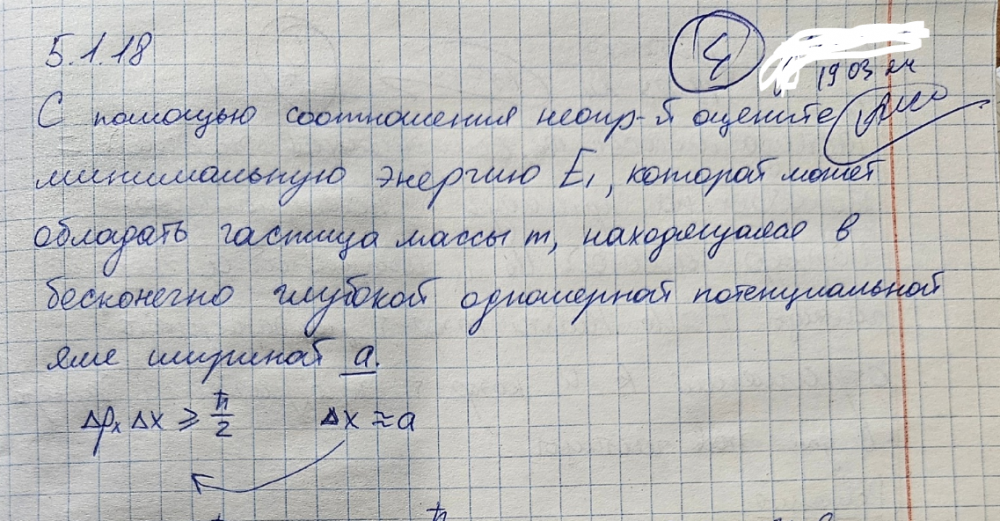 5.1.18
4
19 03 24
С помощью соотношения неопр-й оцените
минимальную энергию E₁, которой может
обладать частица массы m, находящаяся в
бесконечно глубокой одномерной потенциальной
яме шириной a.
Δpₓ Δx ≥ ħ/2 Δx ≈ a